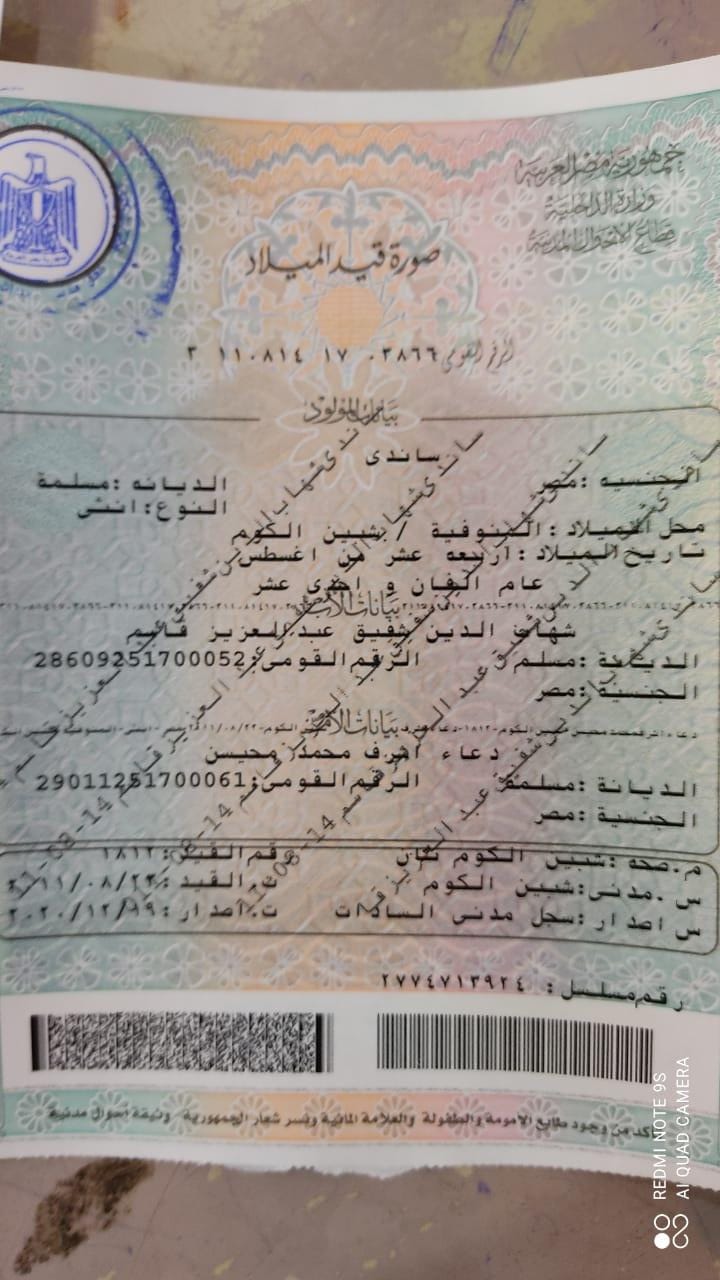 جمهورية مصر العربية
وزارة الداخلية
قطاع الأحوال المدنية
صورة قيد الميلاد
الرقم القومى ٣ ١١٠٨١٤ ١٧ ٠٣٨٦٦
بيانات المولود
ساندى
الجنسيه :مصر الديانه :مسلمة
النوع:انثى
محل الميلاد : المنوفية / شبين الكوم
تاريخ الميلاد : اربعه عشر من اغسطس
عام الفان و احدى عشر
بيانات الأب
شهاب الدين شفيق عبد العزيز قاسم
الديانة :مسلم الرقم القومى:28609251700052
الجنسية :مصر
بيانات الأم
دعاء اشرف محمد محيسن
الديانة :مسلمة الرقم القومى:29011251700061
الجنسية :مصر
م.صحه :شبين الكوم ثان رقم القيد :١٨١٢
س .مدنى:شبين الكوم ت.القيد :٢٠١١/٠٨/٢٣
س اصدار :سجل مدنى السادات ت.اصدار :٢٠٢٠/١٢/١٩
رقم مسلسل : ٢٧٧٤٧١٣٩٢٤
تأكد من وجود طابع الأمومة والطفولة والعلامة المائية ونسر شعار الجمهورية وثيقة أحوال مدنية
REDMI NOTE 9S
AI QUAD CAMERA